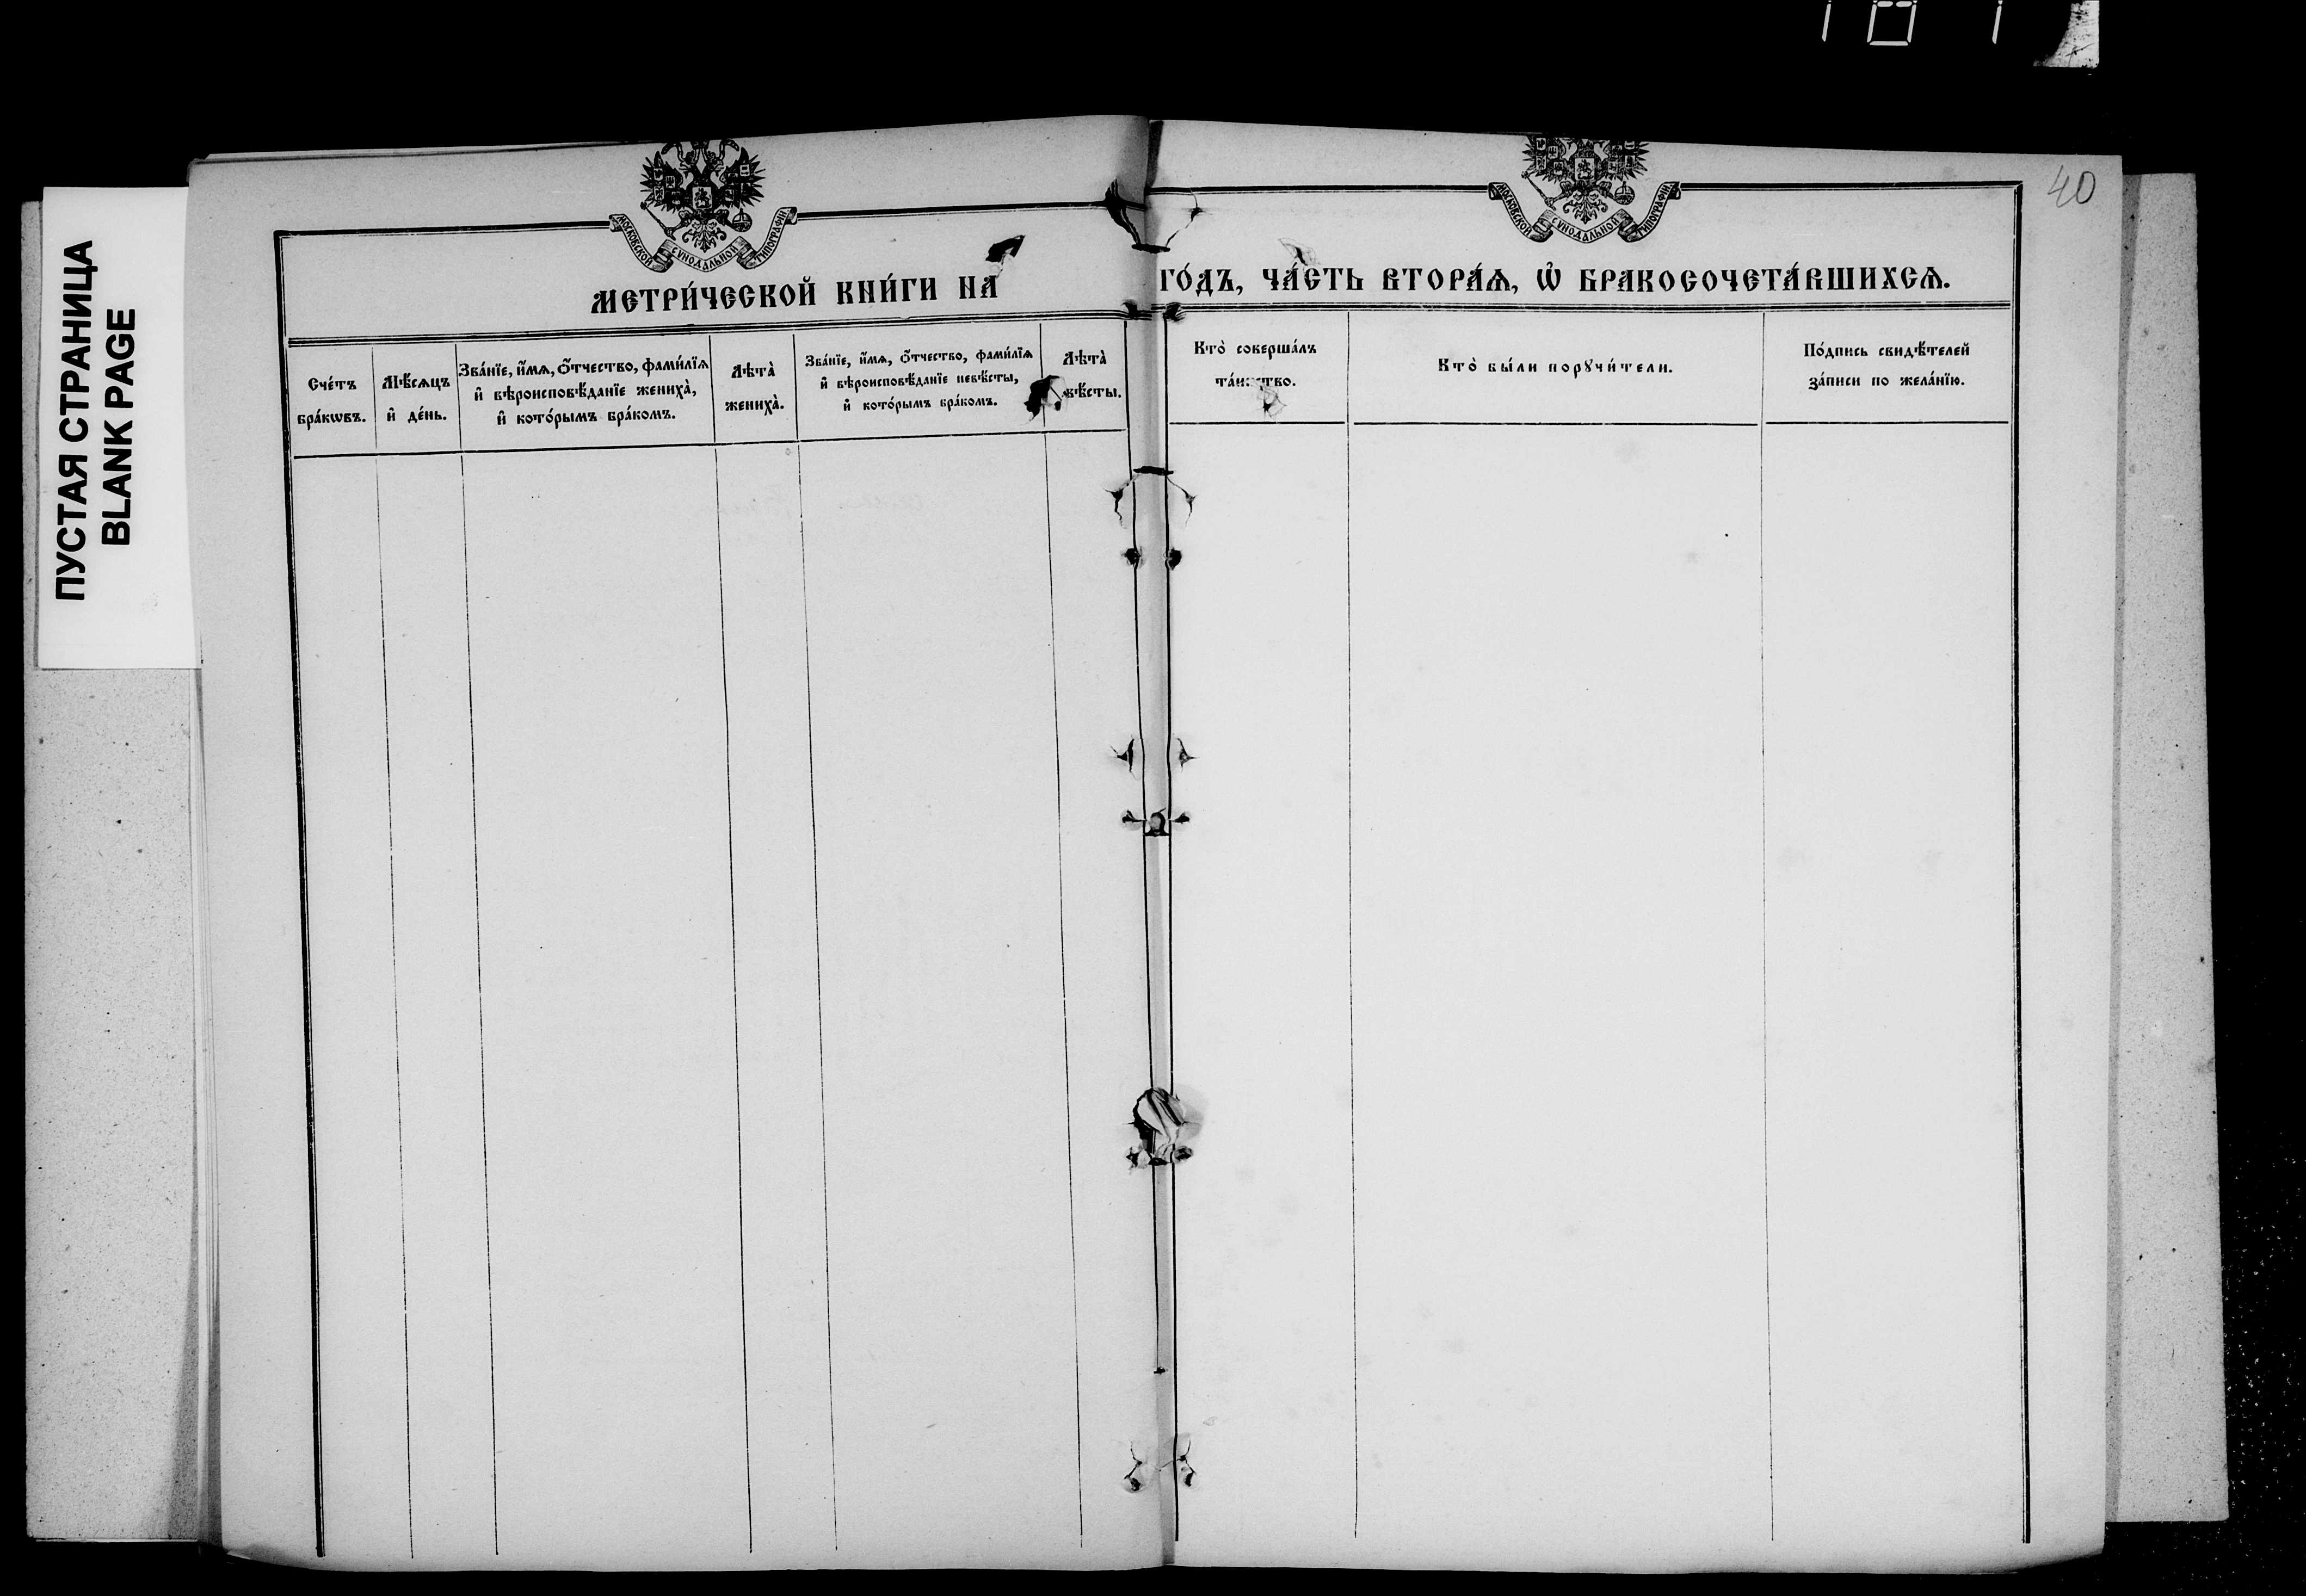 ПУСТАЯ СТРАНИЦА
BLANK PAGE
40
МОСКОВСКОЙ СѴНОДАЛЬНОЙ ТИПОГРАФІИ
МОСКОВСКОЙ СѴНОДАЛЬНОЙ ТИПОГРАФІИ
МЕТРИ́ЧЕСКОЙ КНИ́ГИ НА
ГО́ДЪ, ЧА́СТЬ ВТОРА́Ѧ, Ѡ҆ БРАКОСОЧЕТА́ВШИХСѦ.
Сче́тъ
бра́кѡвъ.
Мѣ́сѧцъ
и҆ де́нь.
Зва́нїе, и҆́мѧ, ѻ҆́тчество, фами́лїѧ
и҆ вѣроисповѣ́данїе жениха̀,
и҆ кото́рымъ бра́комъ.
Лѣта̀
жениха̀.
Зва́нїе, и҆́мѧ, ѻ҆́тчество, фами́лїѧ
и҆ вѣроисповѣ́данїе невѣ́сты,
и҆ кото́рымъ бра́комъ.
Лѣта̀
вѣ́сты.
Кто̀ соверша́лъ
та́инство.
Кто̀ бы́ли порꙋчи́тели.
По́дпись свидѣ́телей
за́писи по жела́нїю.